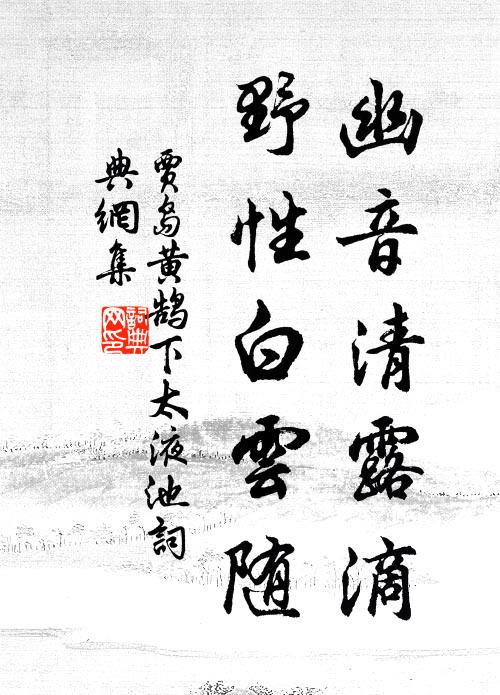 幽音清露滴
野性白雲随
賈島黄鹄下太液池詞
典網集
詞典网印